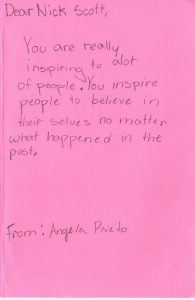 Dear Nick Scott,
You are really
inspiring to alot
of people. You inspire
people to believe in
their selves no matter
what happened in the
past.
From: Angela Prieto